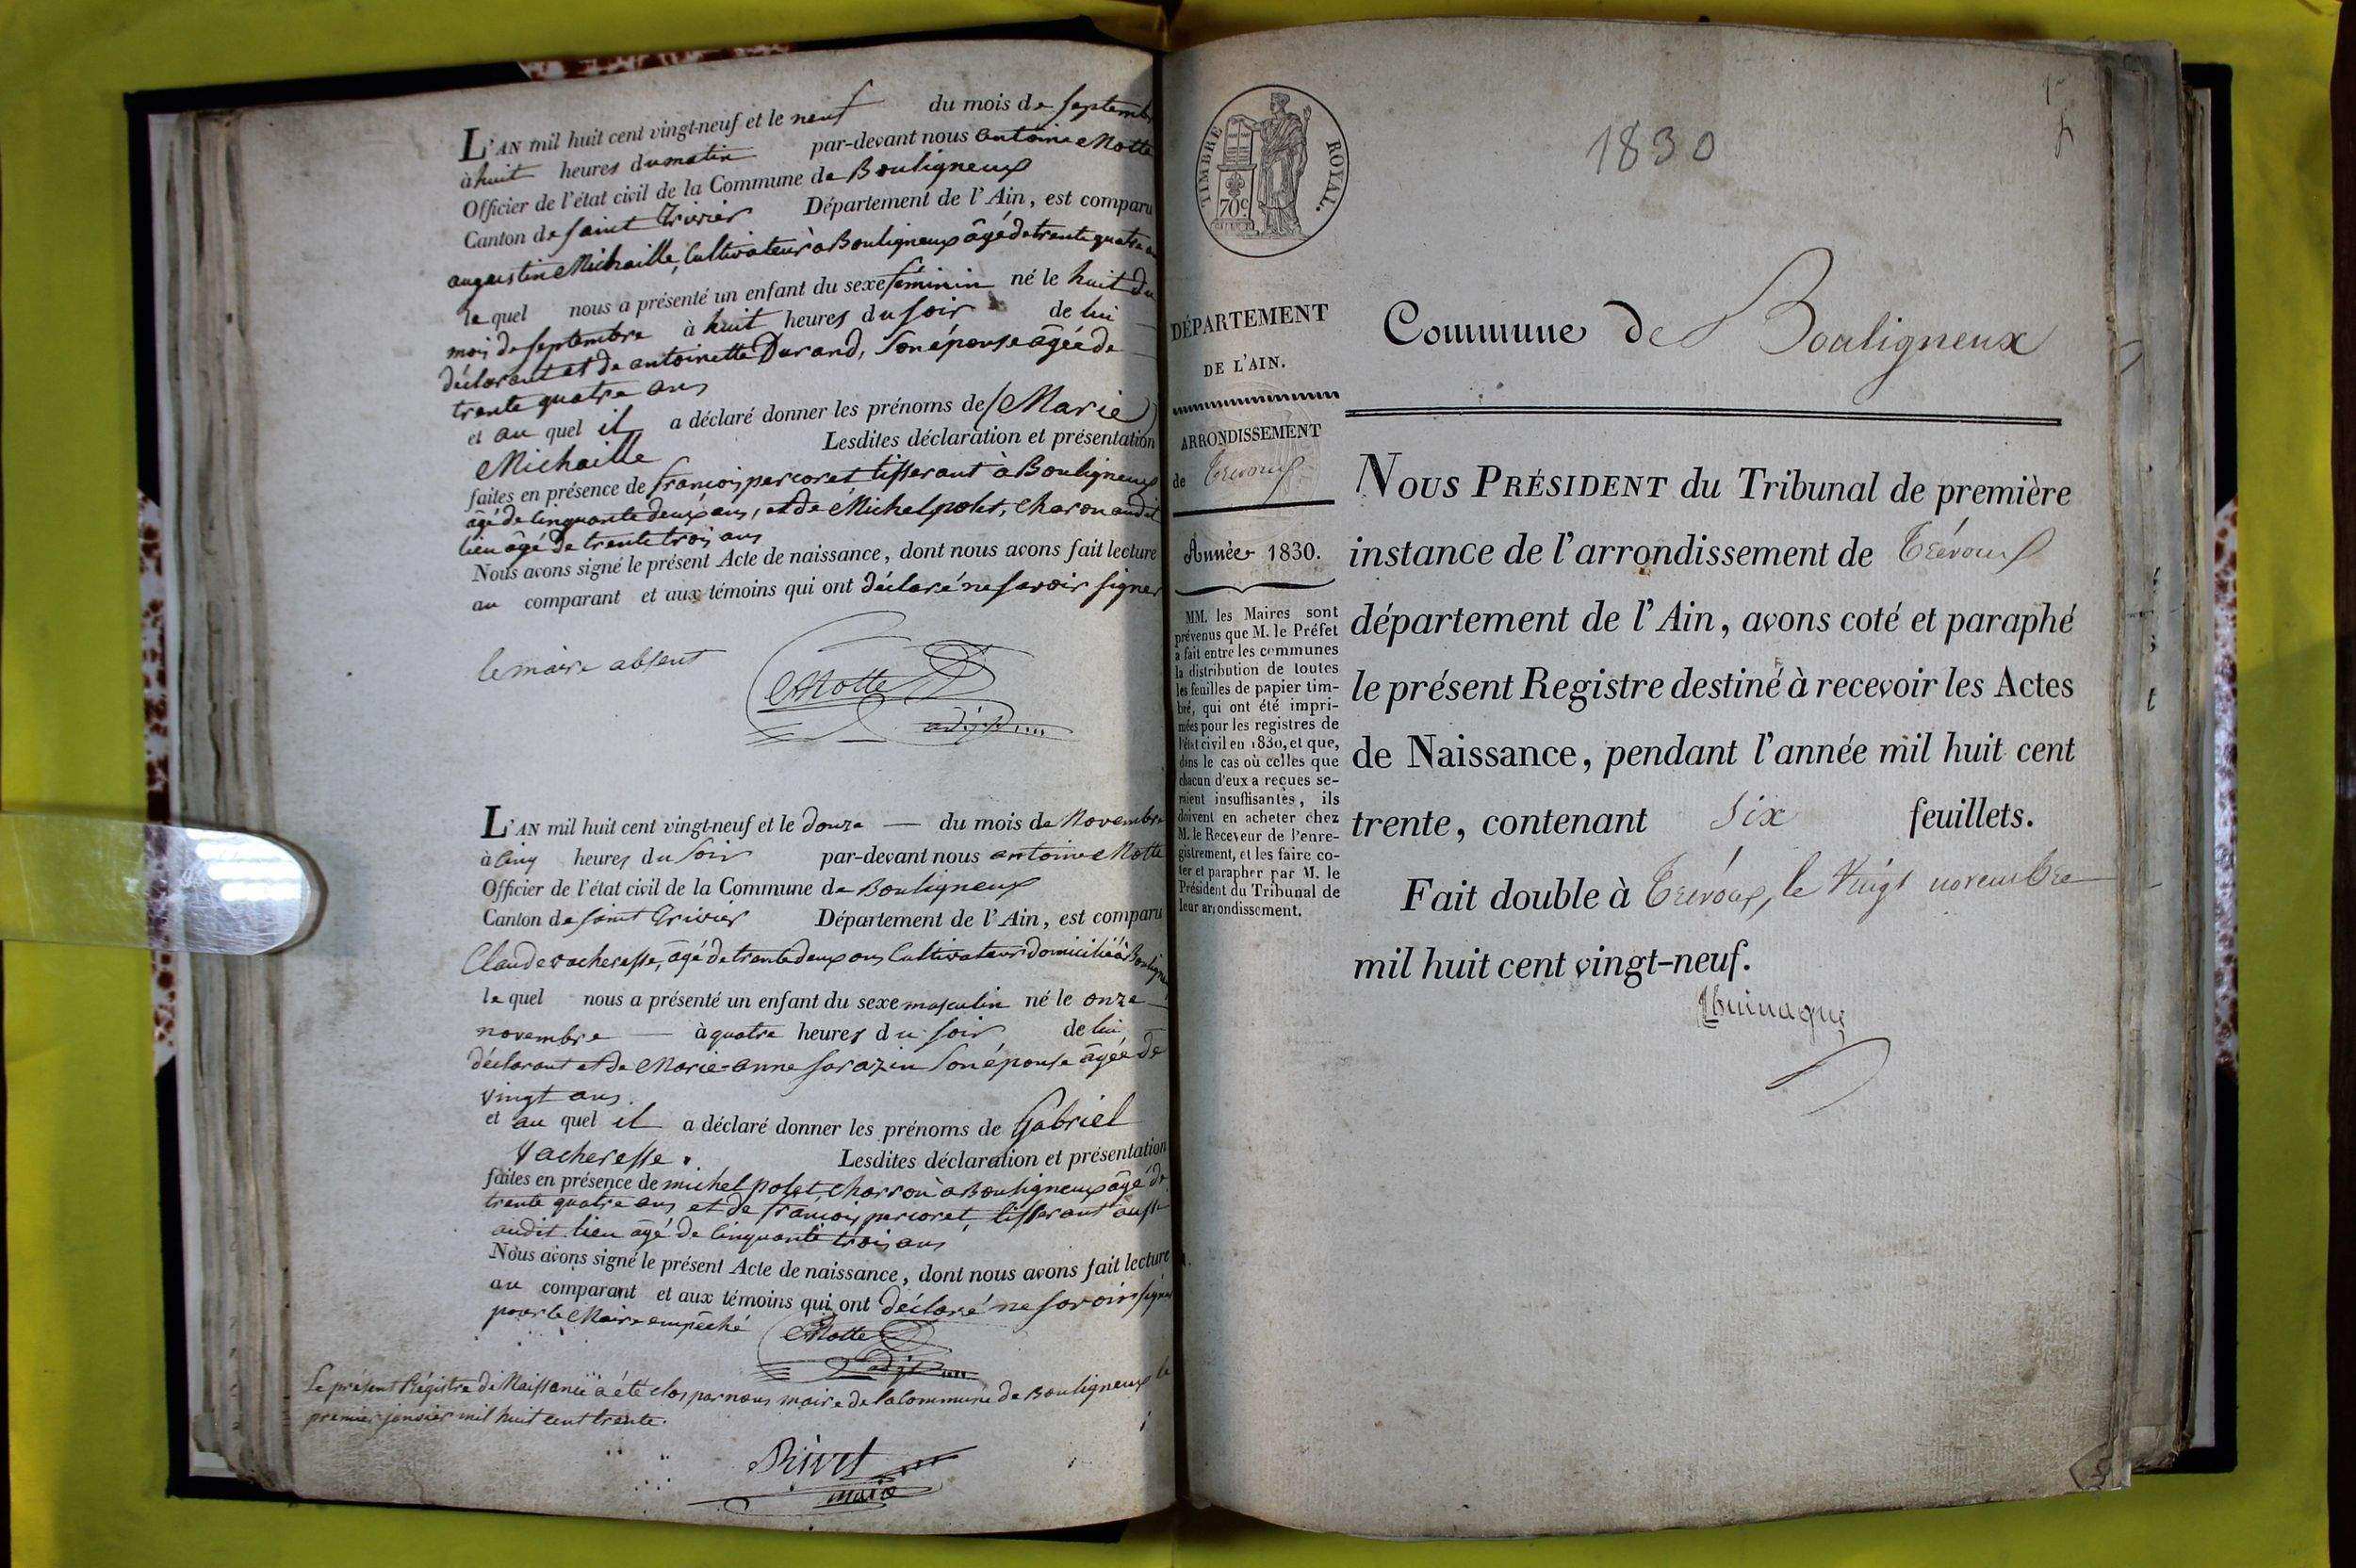 L'AN mil huit cent vingt-neuf et le neuf du mois de septembre
à huit heures du matin par-devant nous antoine Motte
Officier de l'état civil de la Commune de Bouligneux
Canton de saint trivier Département de l'Ain, est comparu
augustin Michaille, Cultivateur à Bouligneux âgé de trente quatre ans
le quel nous a présenté un enfant du sexe féminin né le huit du
mois de septembre à huit heures du soir de lui
déclarant et de antoinette Durand, son épouse âgée de
trente quatre ans
et au quel il a déclaré donner les prénoms de Marie
Michaille Lesdites déclaration et présentation
faites en présence de françois percoret tisserant à Bouligneux
âgé de cinquante deux ans, et de Michel polet, charon audit
lieu âgé de trente trois ans
Nous avons signé le présent Acte de naissance, dont nous avons fait lecture
au comparant et aux témoins qui ont déclaré ne savoir signer
le maire absent
Motte
adjt
L'AN mil huit cent vingt-neuf et le douze du mois de Novembre
à cinq heures du soir par-devant nous antoine Motte
Officier de l'état civil de la Commune de Bouligneux
Canton de saint trivier Département de l'Ain, est comparu
Claude vacheresse, âgé de trente deux ans Cultivateur domicilié à Bouligneux
le quel nous a présenté un enfant du sexe masculin né le onze
novembre à quatre heures du soir de lui
déclarant et de Marie-anne sarazin son épouse âgée de
vingt ans.
et au quel il a déclaré donner les prénoms de Gabriel
vacheresse. Lesdites déclaration et présentation
faites en présence de michel polet, charron à Bouligneux âgé de
trente quatre ans et de françois percoret, tisserant aussi
audit lieu âgé de cinquante trois ans
Nous avons signé le présent Acte de naissance, dont nous avons fait lecture
au comparant et aux témoins qui ont déclaré ne savoir signer
pour le Maire empêché
Motte
adjt
Le présent Régistre de Naissance a été clos par nous maire de la Commune de Bouligneux le
premier janvier mil huit cent trente.
Rivet
maire
TIMBRE ROYAL.
70c
DÉPARTEMENT
DE L'AIN.
ARRONDISSEMENT
de Trévoux
Année 1830.
MM. les Maires sont
prévenus que M. le Préfet
a fait entre les communes
la distribution de toutes
les feuilles de papier tim-
bré, qui ont été impri-
mées pour les registres de
l'état civil en 1830, et que,
dans le cas où celles que
chacun d'eux a reçues se-
raient insuffisantes, ils
doivent en acheter chez
M. le Receveur de l'enre-
gistrement, et les faire co-
ter et parapher par M. le
Président du Tribunal de
leur arrondissement.
1830
Commune de Bouligneux
NOUS PRÉSIDENT du Tribunal de première
instance de l'arrondissement de Trévoux
département de l'Ain, avons coté et paraphé
le présent Registre destiné à recevoir les Actes
de Naissance, pendant l'année mil huit cent
trente, contenant six feuillets.
Fait double à Trévoux, le vingt novembre
mil huit cent vingt-neuf.